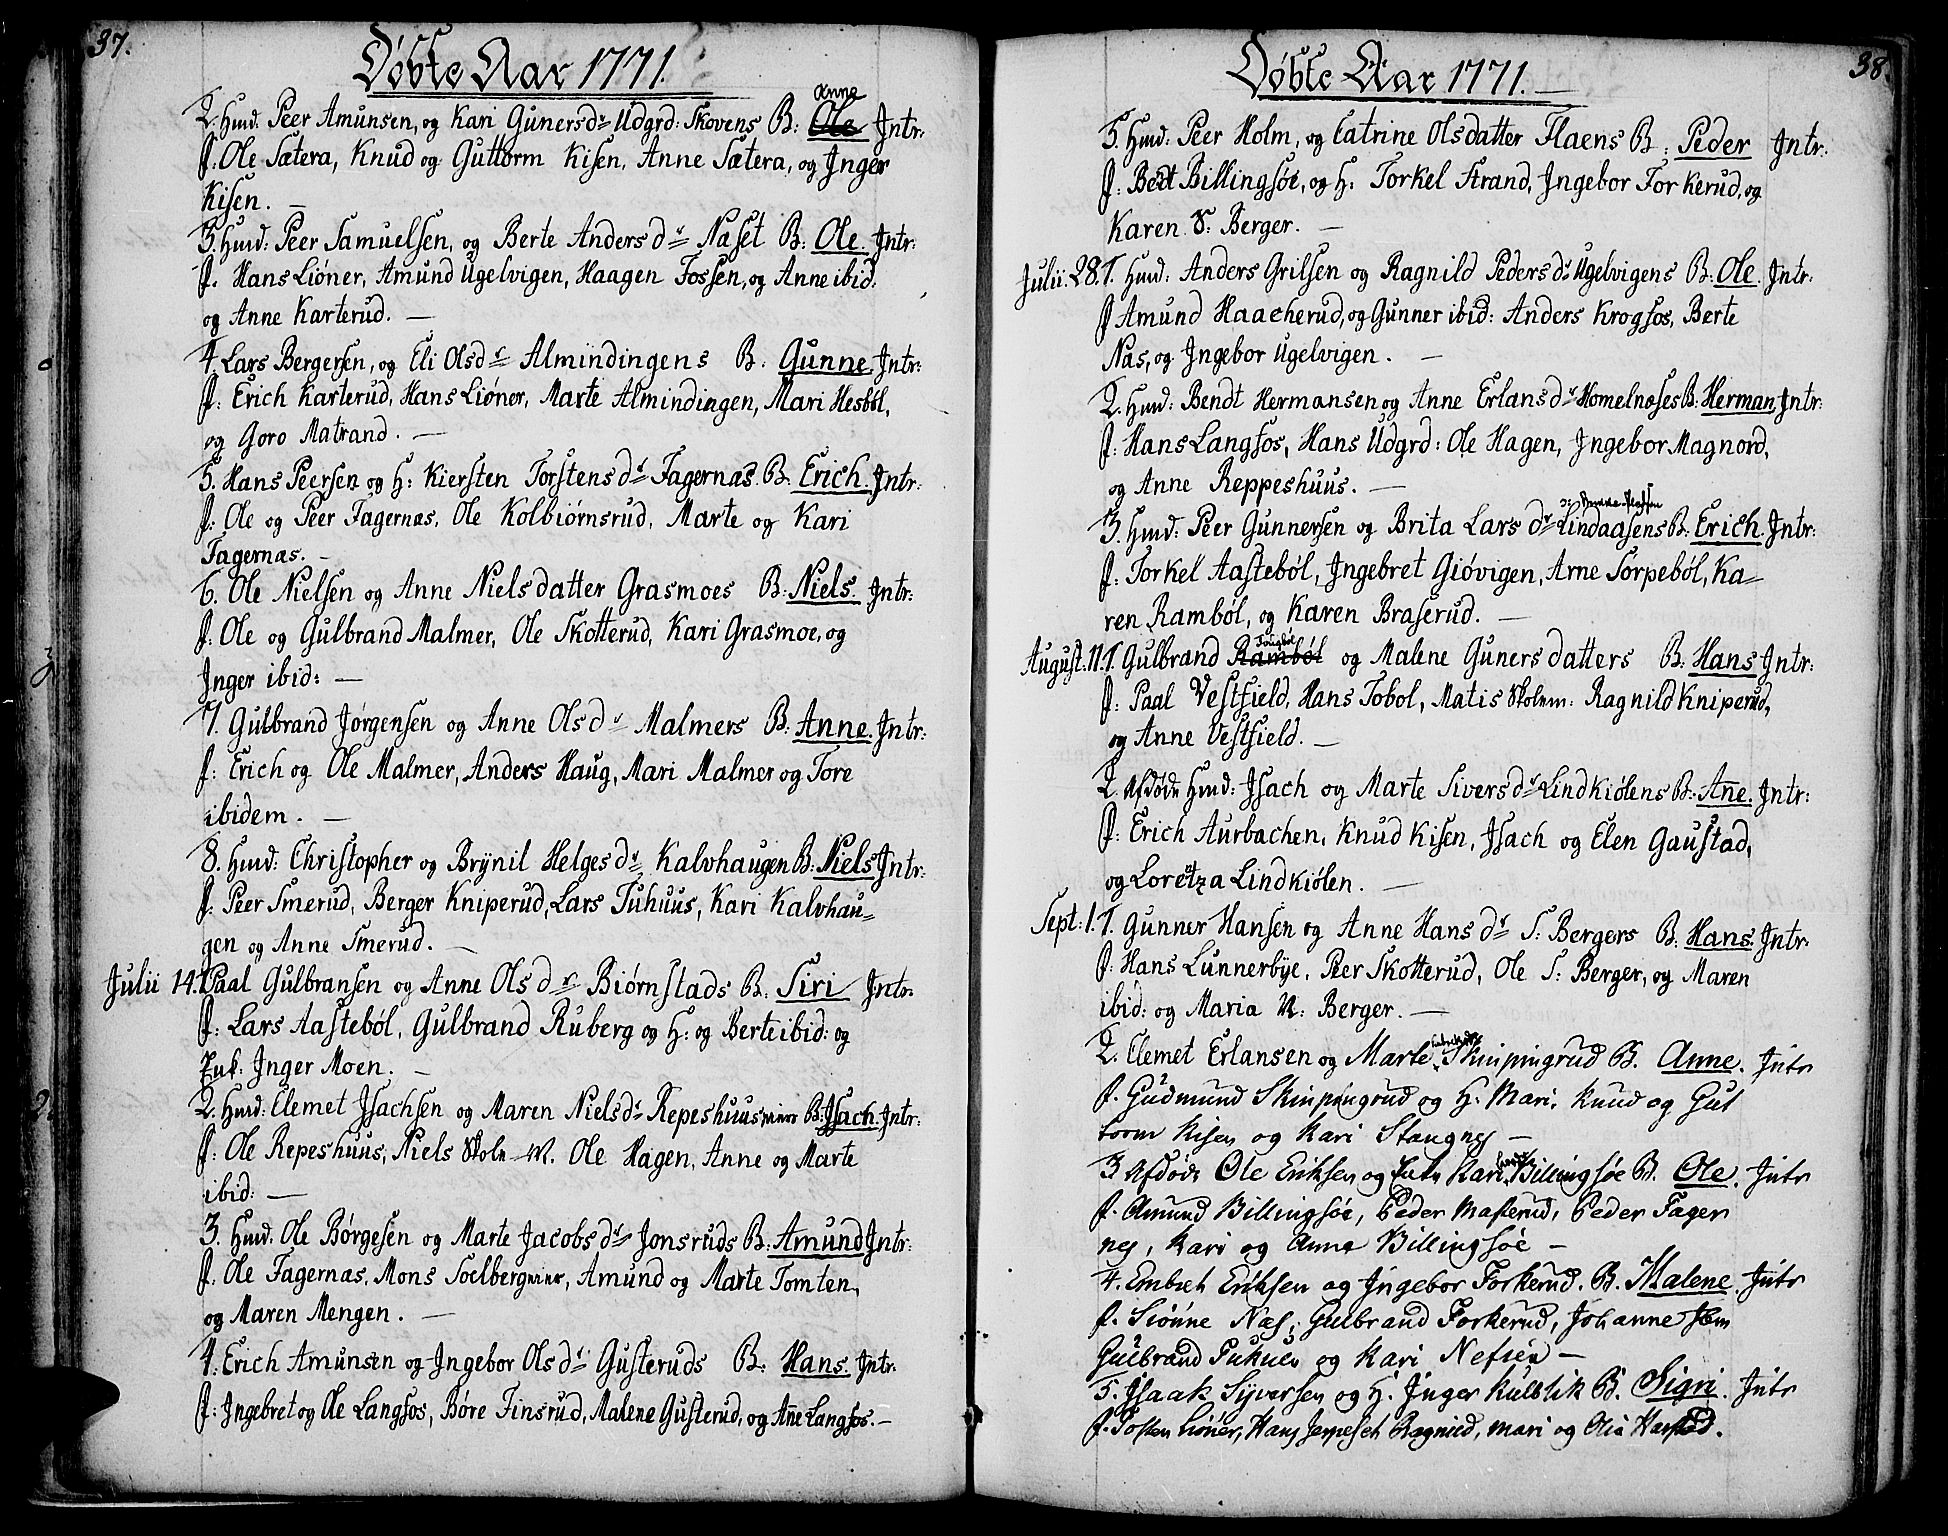 37.
Döbte Aar 1771.
2. Hmd. Peer Amunsen, og Kari Gunersdr Udgrd: Skovens B: Ole Anne Jntr:
f. Ole Sætera, Knud og Guttorm Kisen, Anne Sætera, og Inger
Kisen. —
3. Hmd: Peer Samuelsen, og Berte Andersdr Naset B: Ole. Jntr:
f. Hans Liöner, Amund Ugelvigen, Haagen Fossen, og Anne ibid:
og Anne Karterud. —
4. Lars Bergersen, og Eli Olsdr Almindingens B: Gunne. Jntr:
f: Erich Karterud, Hans Liöner, Marte Almindingen, Mari Hesböl,
og Goro Matrand. —
5. Hans Peersen og H: Kiersten Torstensdr Fagernas. B. Erich. Jntr:
f: Ole og Peer Fagernas, Ole Kolbiörnsrud, Marte og Kari
Fagernas. —
6. Ole Nielsen og Anne Nielsdatter Grasmoes B: Niels. Jntr:
f: Ole og Gulbrand Malmer, Ole Skotterud, Kari Grasmoe, og
Inger ibid: —
7. Gulbrand Jörgensen og Anne Olsdr Malmers B: Anne. Jntr:
f: Erich og Ole Malmer, Anders Haug, Mari Malmer og Tore
ibidem. —
8. Hmd: Christopher og Brÿnil Helgesdr Kalvhaugen B: Niels Jntr:
f: Peer Smerud, Berger Kniperud, Lars Tuhuus, Kari Kalvhau=
gen og Anne Smerud. —
Julii 14. 1. Paal Gulbransen og Anne Olsdr Biörnstads B: Siri Jntr.
f: Lars Aasteböl, Gulbrand Ruberg og H: og Berte ibid: og
Enk: Inger Moen. —
2. Hmd: Elemet Isachsen og Maren Nielsdr Repeshuus B: Isach. Jntr:
f: Ole Repeshuus, Niels Skole M. Ole Hagen, Anne og Marte
ibid: —
3. Hmd: Ole Börgesen og Marte Jacobsdr Jonsruds B: Amund Jntr:
f. Ole Fagernas, Mons Soelberg, Amund og Marte Tomten,
og Maren Mengen. —
4. Erich Amunsen og Ingebor Olsdr Gusteruds B: Hans. Jntr.
f: Ingebret og Ole Langfos, Böre Finsrud, Malene Gusterud, og Añe Langfos. —
38.
Döbte Aar 1771. —
5. Hmd: Peer Holm, og Catrine Olsdatter Flaens B: Peder Jntr:
f: Bent Billingsöe, og H: Torkel Strand, Ingebor Torkerud, og
Karen S: Berger. —
Julii. 28. 1. Hmd: Anders Grilsen og Ragnild Pedersdr Ugelvigens B: Ole. Jntr:
f Amund Haacherud, og Gunner ibid: Anders Krogfos, Berte
Nas, og Ingebor Ugelvigen. —
2. Hmd: Bendt Hermansen og Anne Erlansdr Homelnæses B: Herman Jntr:
f: Hans Langfos, Hans Udgrd: Ole Hagen, Ingebor Magnord,
og Anne Reppeshuus. —
3. Hmd: Peer Gunnersen og Brita Larsdr Lindaasens B: Erich. Jntr:
f: Torkel Aasteböl, Ingebret Giövigen, Arne Torpeböl, Ka=
ren Ramböl, og Karen Braserud. —
August. 11. 1. Gulbrand Ramböl og Malene Gunersdatters B: Hans Jntr:
f: Paal Vestfield, Hans Tobol, Matis Skolem: Ragnild Kniperud,
og Anne Vestfield. —
2. Afdöde Hmd: Isach og Marte Siversdr Lindkiölens B: Añe. Jntr:
f: Erich Aurbachen, Knud Kisen, Isach og Elen Gaustad,
og Loretza Lindkiölen. —
Sept: 1. 1. Gunner Hansen og Anne Hansdr S: Bergers B: Hans. Jntr:
f: Hans Lunnerbye, Peer Skotterud, Ole S: Berger, og Maren
ibid: og Maria N: Berger. —
2. Elemet Erlansen og Marte Skinpingrud B. Anne. Jntr
f. Gudmund Skinpingrud og H. Mari, Knud og Gut
torm Kisen og Kari Stangnes —
3 Afdöde Ole Eriksen og Enke Kari Billingsöe B. Ole. Jntr
f. Amund Billingsöe, Peder Masterud, Peder Fager
nes, Kari og Anne Billingsöe —
4. Embret Eriksen og Ingebor Torkerud. B. Malene. Jntr
f. Siönne Nas, Gulbrand Torkerud, Johanne
Gulbrand Tukuen og Kari Nefsen —
5. Isaak Sÿversen og H. Inger Kulblik B. Sigri. Jntr
f. Tosten Liöner, Hans Serpeset Ragnild, Mari og Olia Harstad.